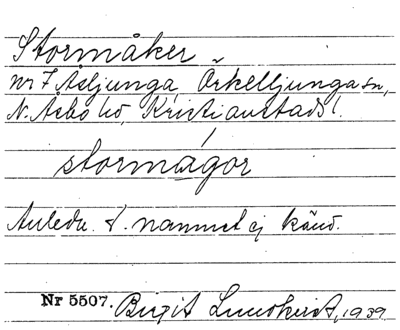 Stormåker
nr 7 Åsljunga, Örkelljunga sn,
N. Åsbo hd, Kristianstads l.
stormágor
Anledn. t. namnet ej känd.
Nr 5507. Birgit Lundkvist, 1939